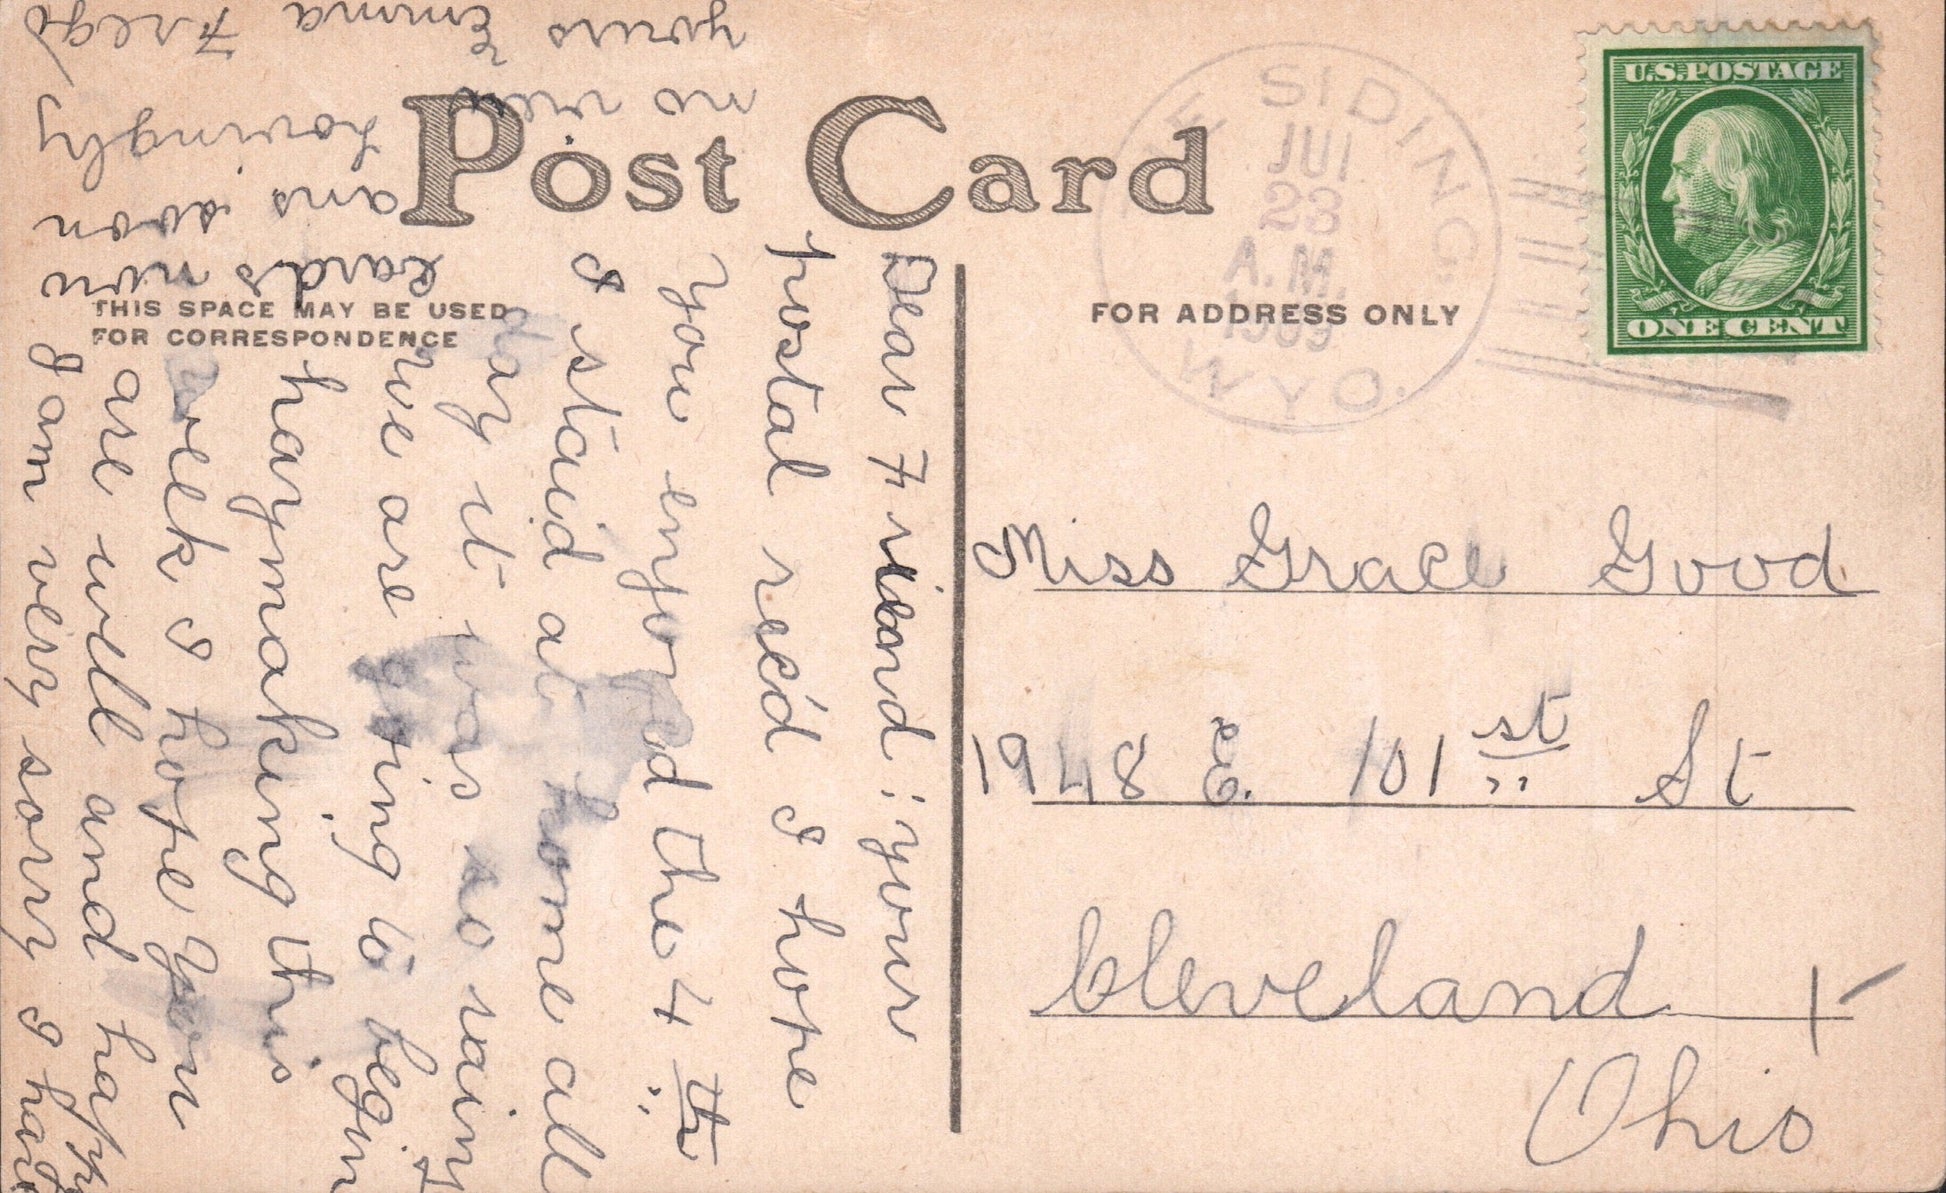 POST CARD
THIS SPACE MAY BE USED
FOR CORRESPONDENCE
FOR ADDRESS ONLY
U.S. POSTAGE
ONE CENT
SIDING,
JUL
23
A.M.
1909
WYO.
Miss Grace Good
1948 E. 101st St
Cleveland
Ohio
Dear Friend: your
postal rec'd I hope
you enjoyed the 4th
I staid at home all
day it was so rainy
We are going to begin
haymaking this
week I hope you
are well and happy
I am very sorry I have
no view
cards now
ans soon
Lovingly
yours Emma Frego